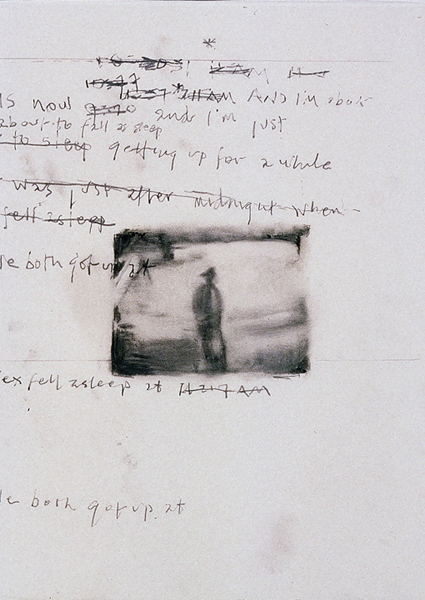 is now And I'm about
about to fall asleep and I'm just
to sleep getting up for a while
was just after midnight when
fell asleep
e both got up at
ex fell asleep at 11:27 AM
e both got up at